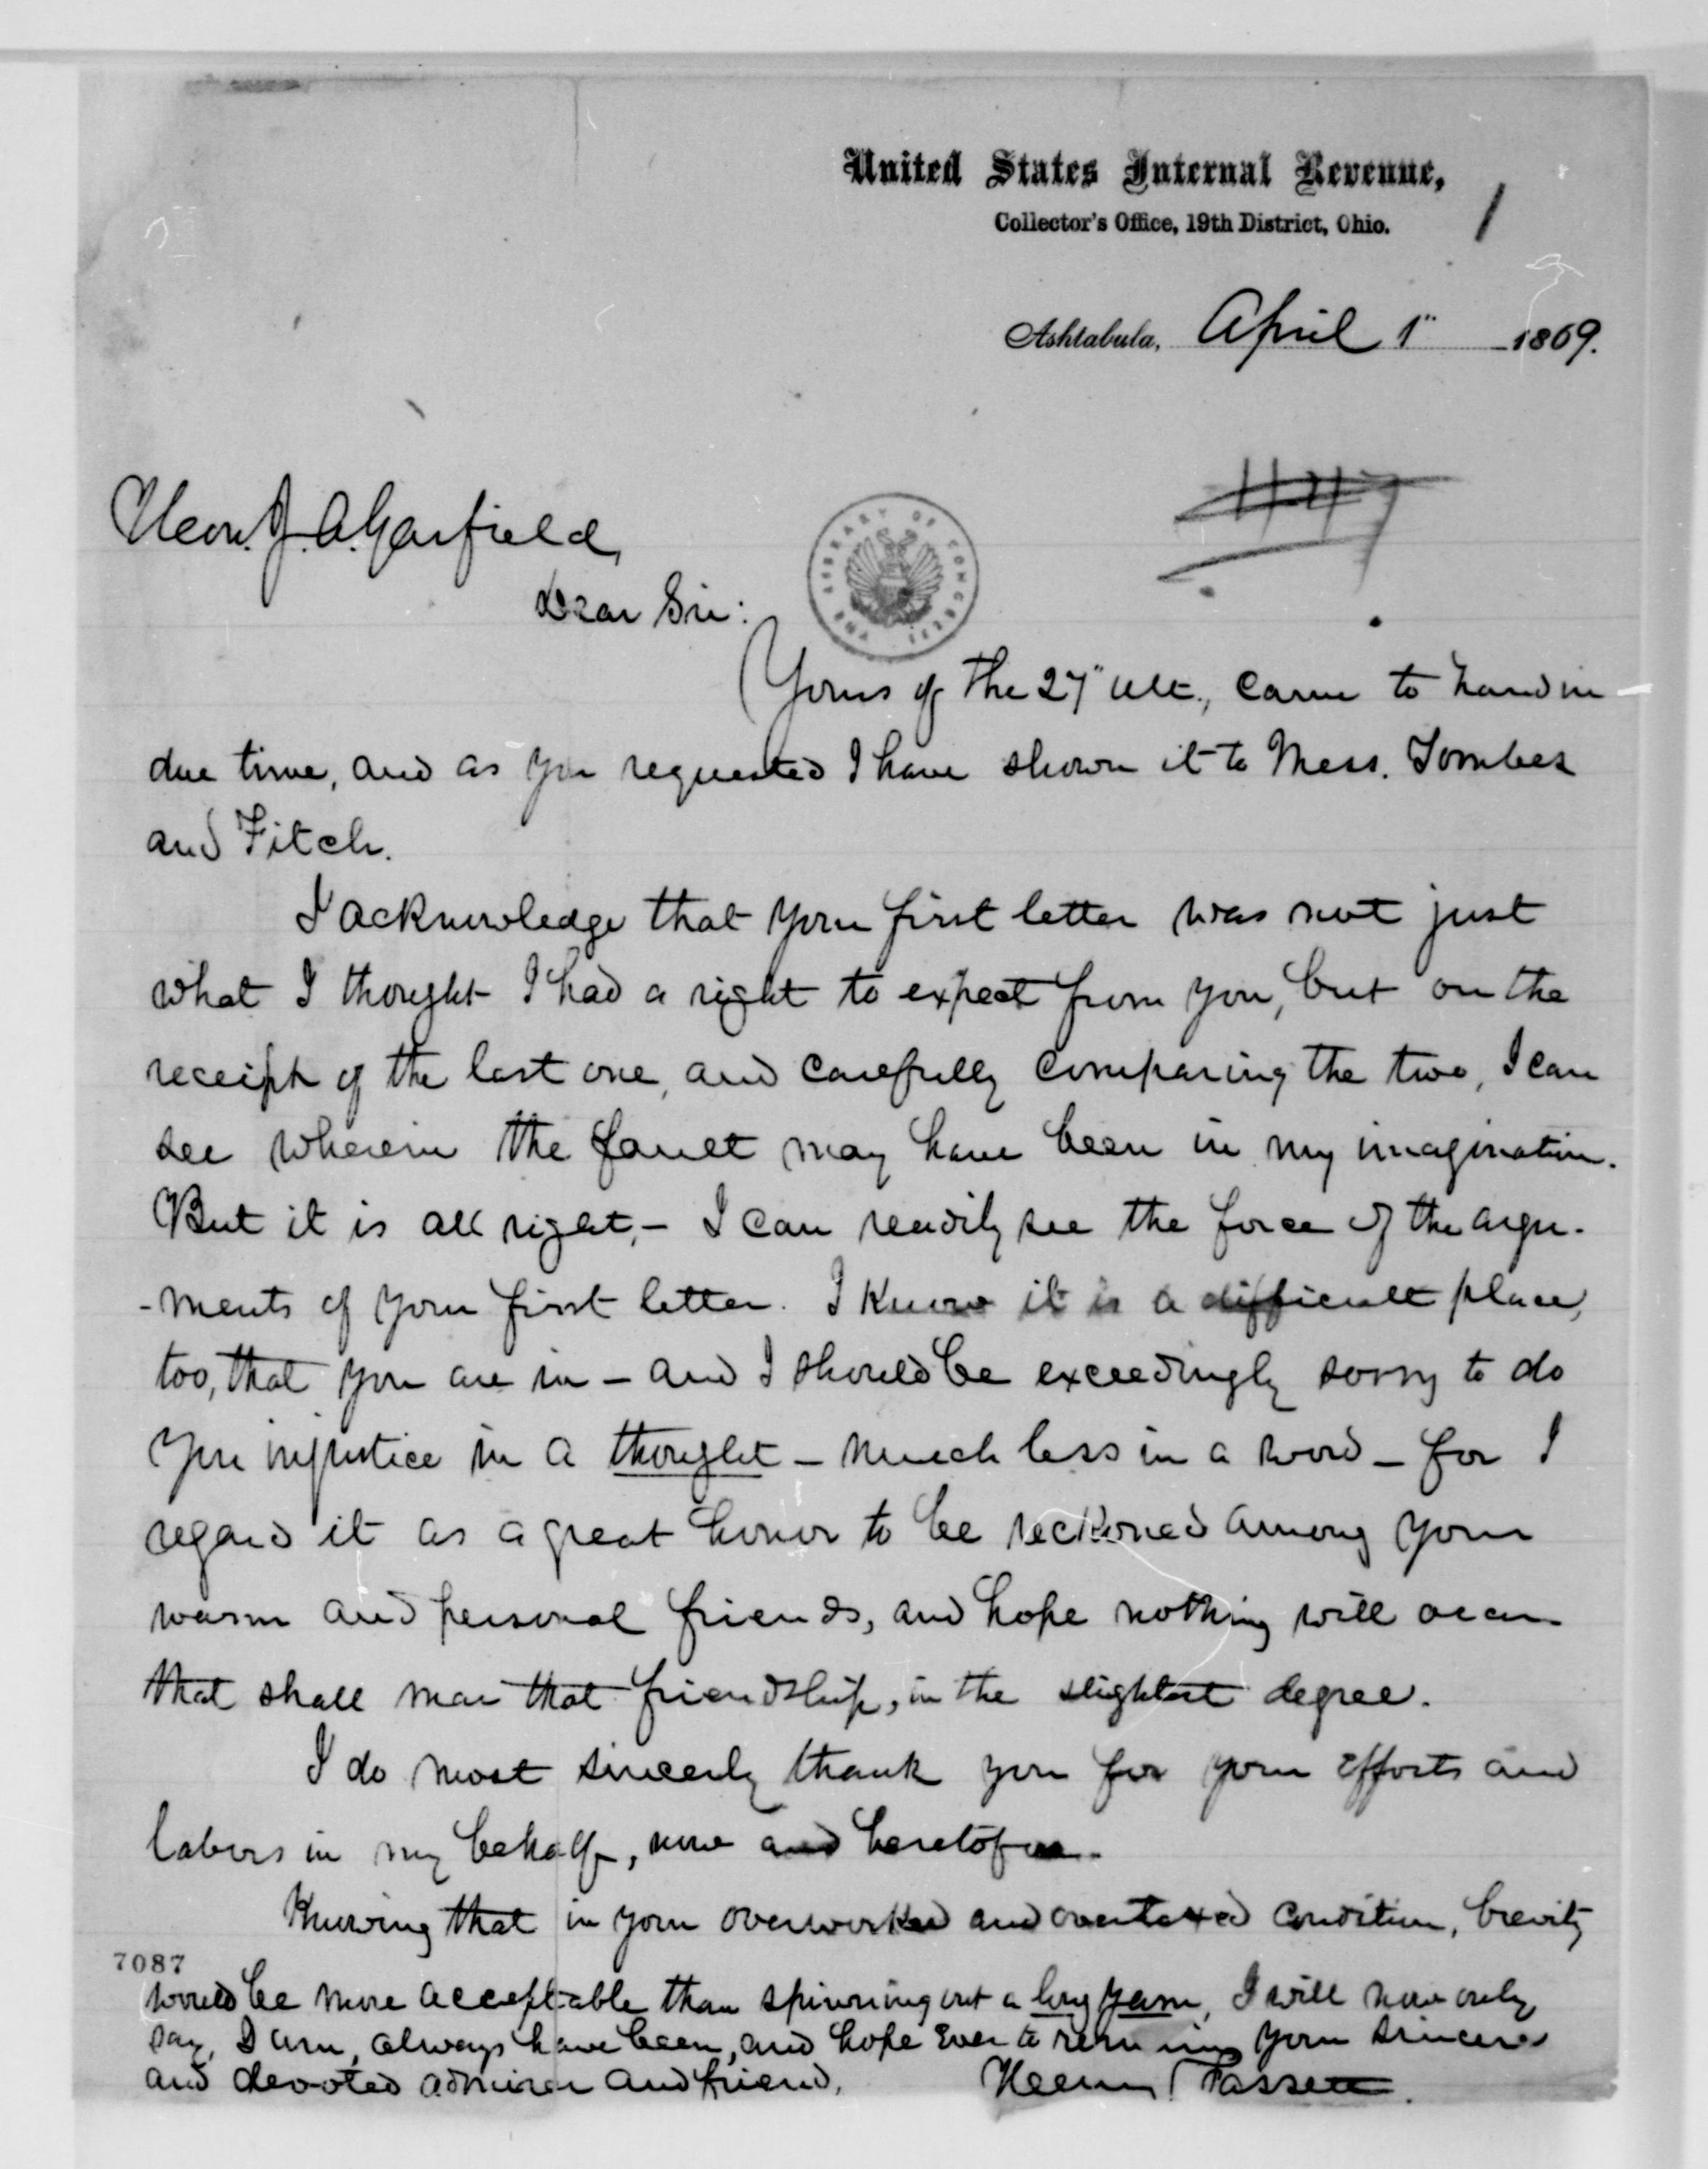 United States Internal Revenue,
Collector's Office, 19th District, Ohio.
1
Ashtabula, April 1" 1869.
Hon. J. A. Garfield,
THE LIBRARY OF CONGRESS
Dear Sir:
Yours of the 27" ult., came to hand in
due time, and as you requested I have shown it to Mess. Tombes
and Fitch.
I acknowledge that your first letter was not just
what I thought I had a right to expect from you, but on the
receipt of the last one, and carefully comparing the two, I can
see wherein the fault may have been in my imagination.
But it is all right,- I can readily see the force of the argu-
-ments of your first letter. I know it is a difficult place,
too, that you are in - and I should be exceedingly sorry to do
you injustice in a thought - much less in a word - for I
regard it as a great honor to be reckoned among your
warm and personal friends, and hope nothing will occur
that shall mar that friendship, in the slightest degree.
I do most sincerely thank you for your efforts and
labors in my behalf, now and heretofore.
Knowing that in your overworked and overtaxed condition, brevity
7087
would be more acceptable than spinning out a long yarn, I will now only
say, I am, always have been, and hope ever to remain your sincere
and devoted admirer and friend,
Henry Fassett.